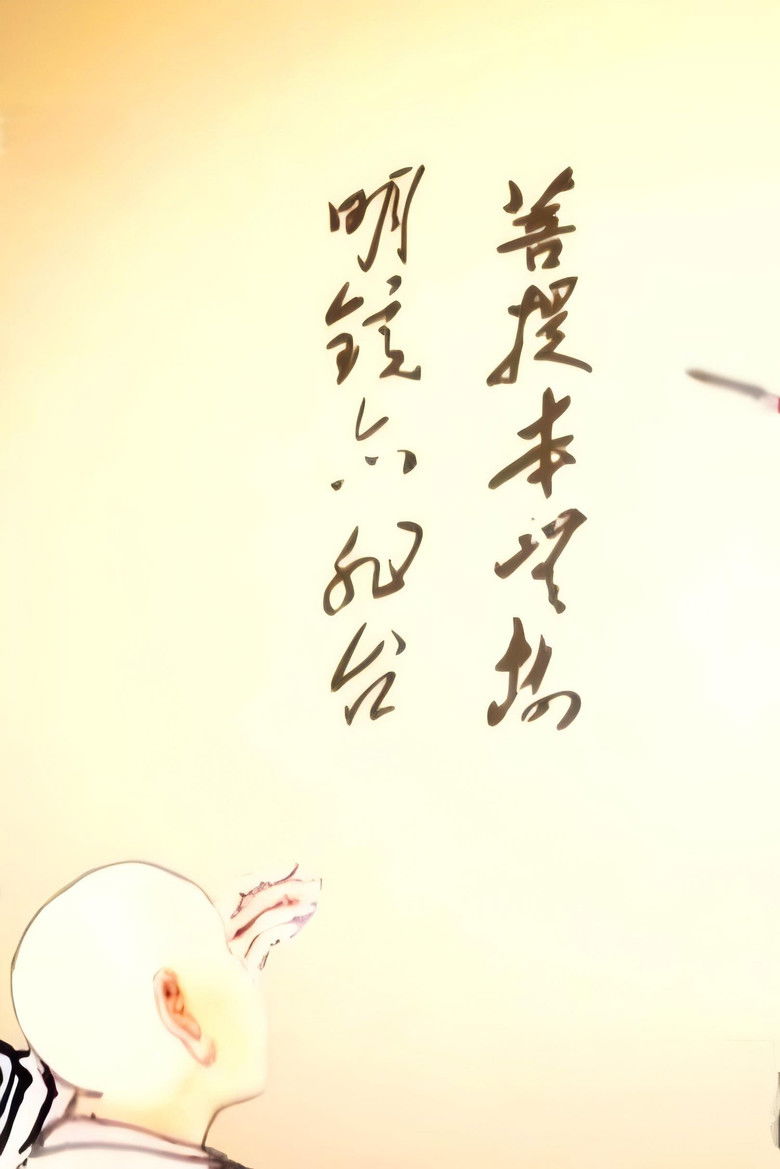 菩提本無樹
明鏡亦非台